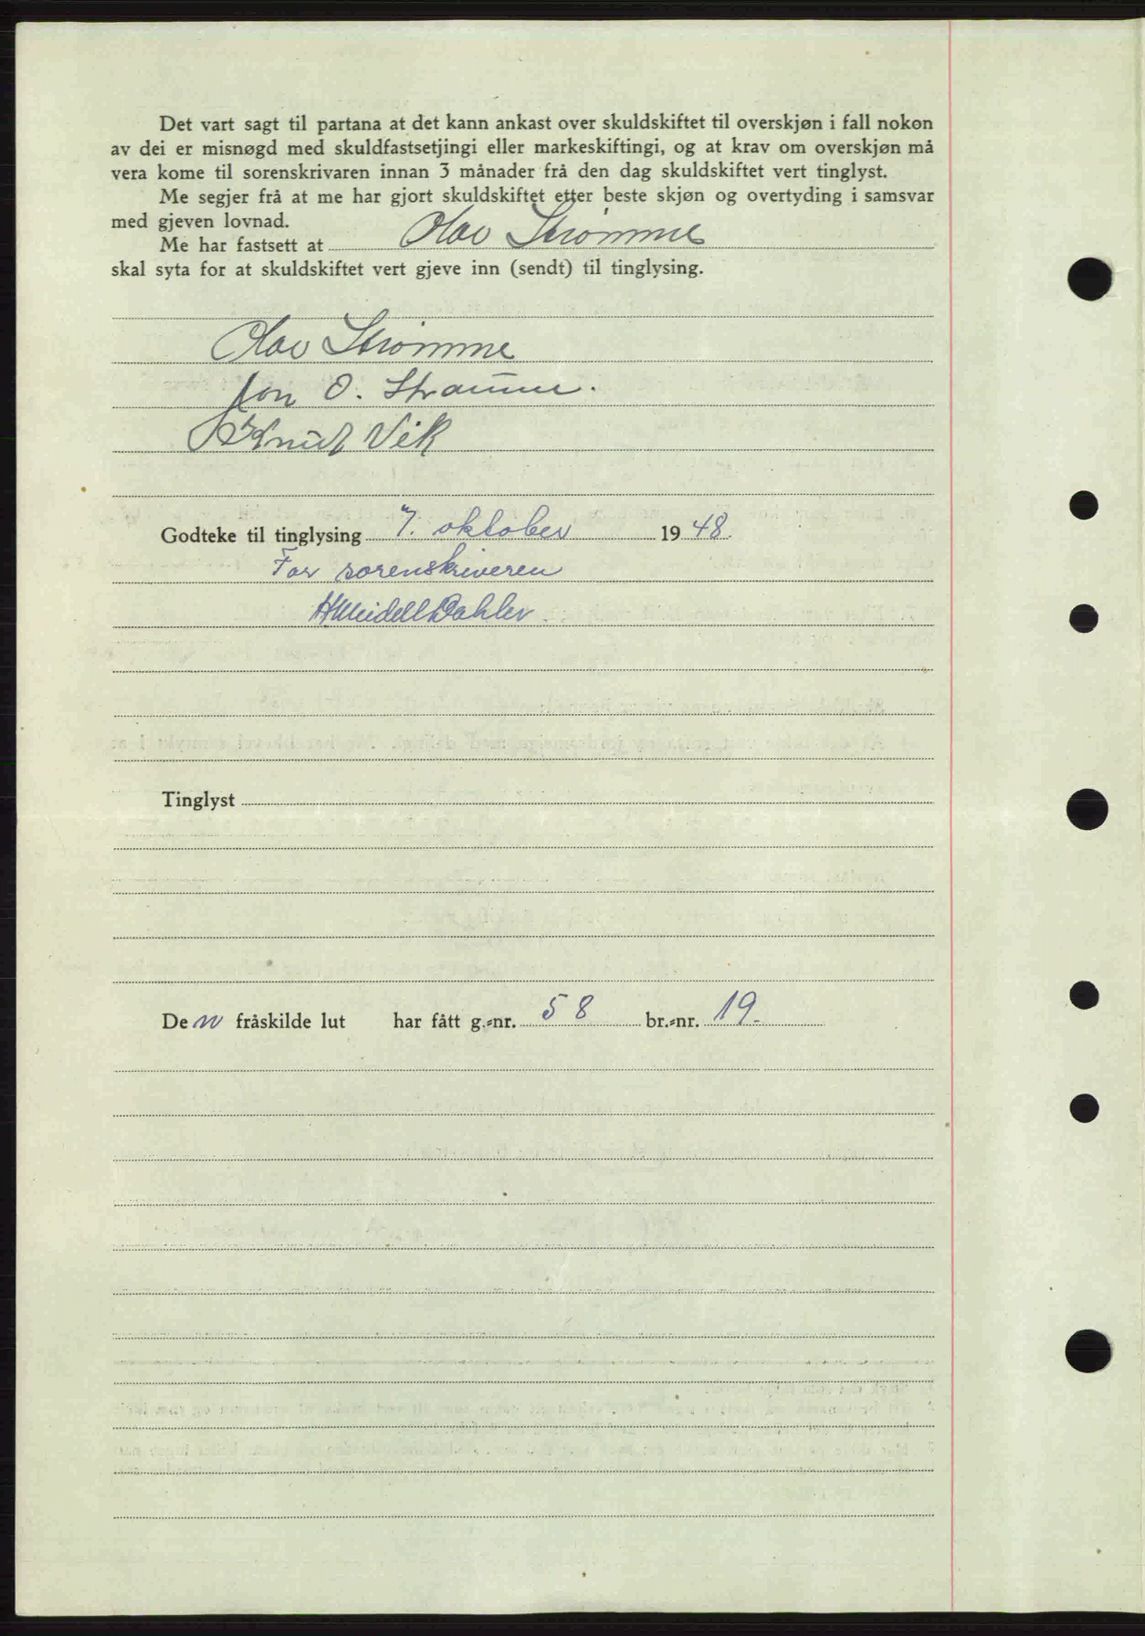 Det vart sagt til partana at det kann ankast over skuldskiftet til overskjøn i fall nokon
av dei er misnøgd med skuldfastsetjingi eller markeskiftingi, og at krav om overskjøn må
vera kome til sorenskrivaren innan 3 månader frå den dag skuldskiftet vert tinglyst.
Me segjer frå at me har gjort skuldskiftet etter beste skjøn og overtyding i samsvar
med gjeven lovnad.
Me har fastsett at Olav Strømme
skal syta for at skuldskiftet vert gjeve inn (sendt) til tinglysing.
Olav Strømme
Jon O. Straume.
Knut Vik
Godteke til tinglysing 7. oktober 1948.
For sorenskriveren
H Meidell Dahler.
Tinglyst
Den fråskilde lut har fått g.-nr. 58 br.-nr. 19.